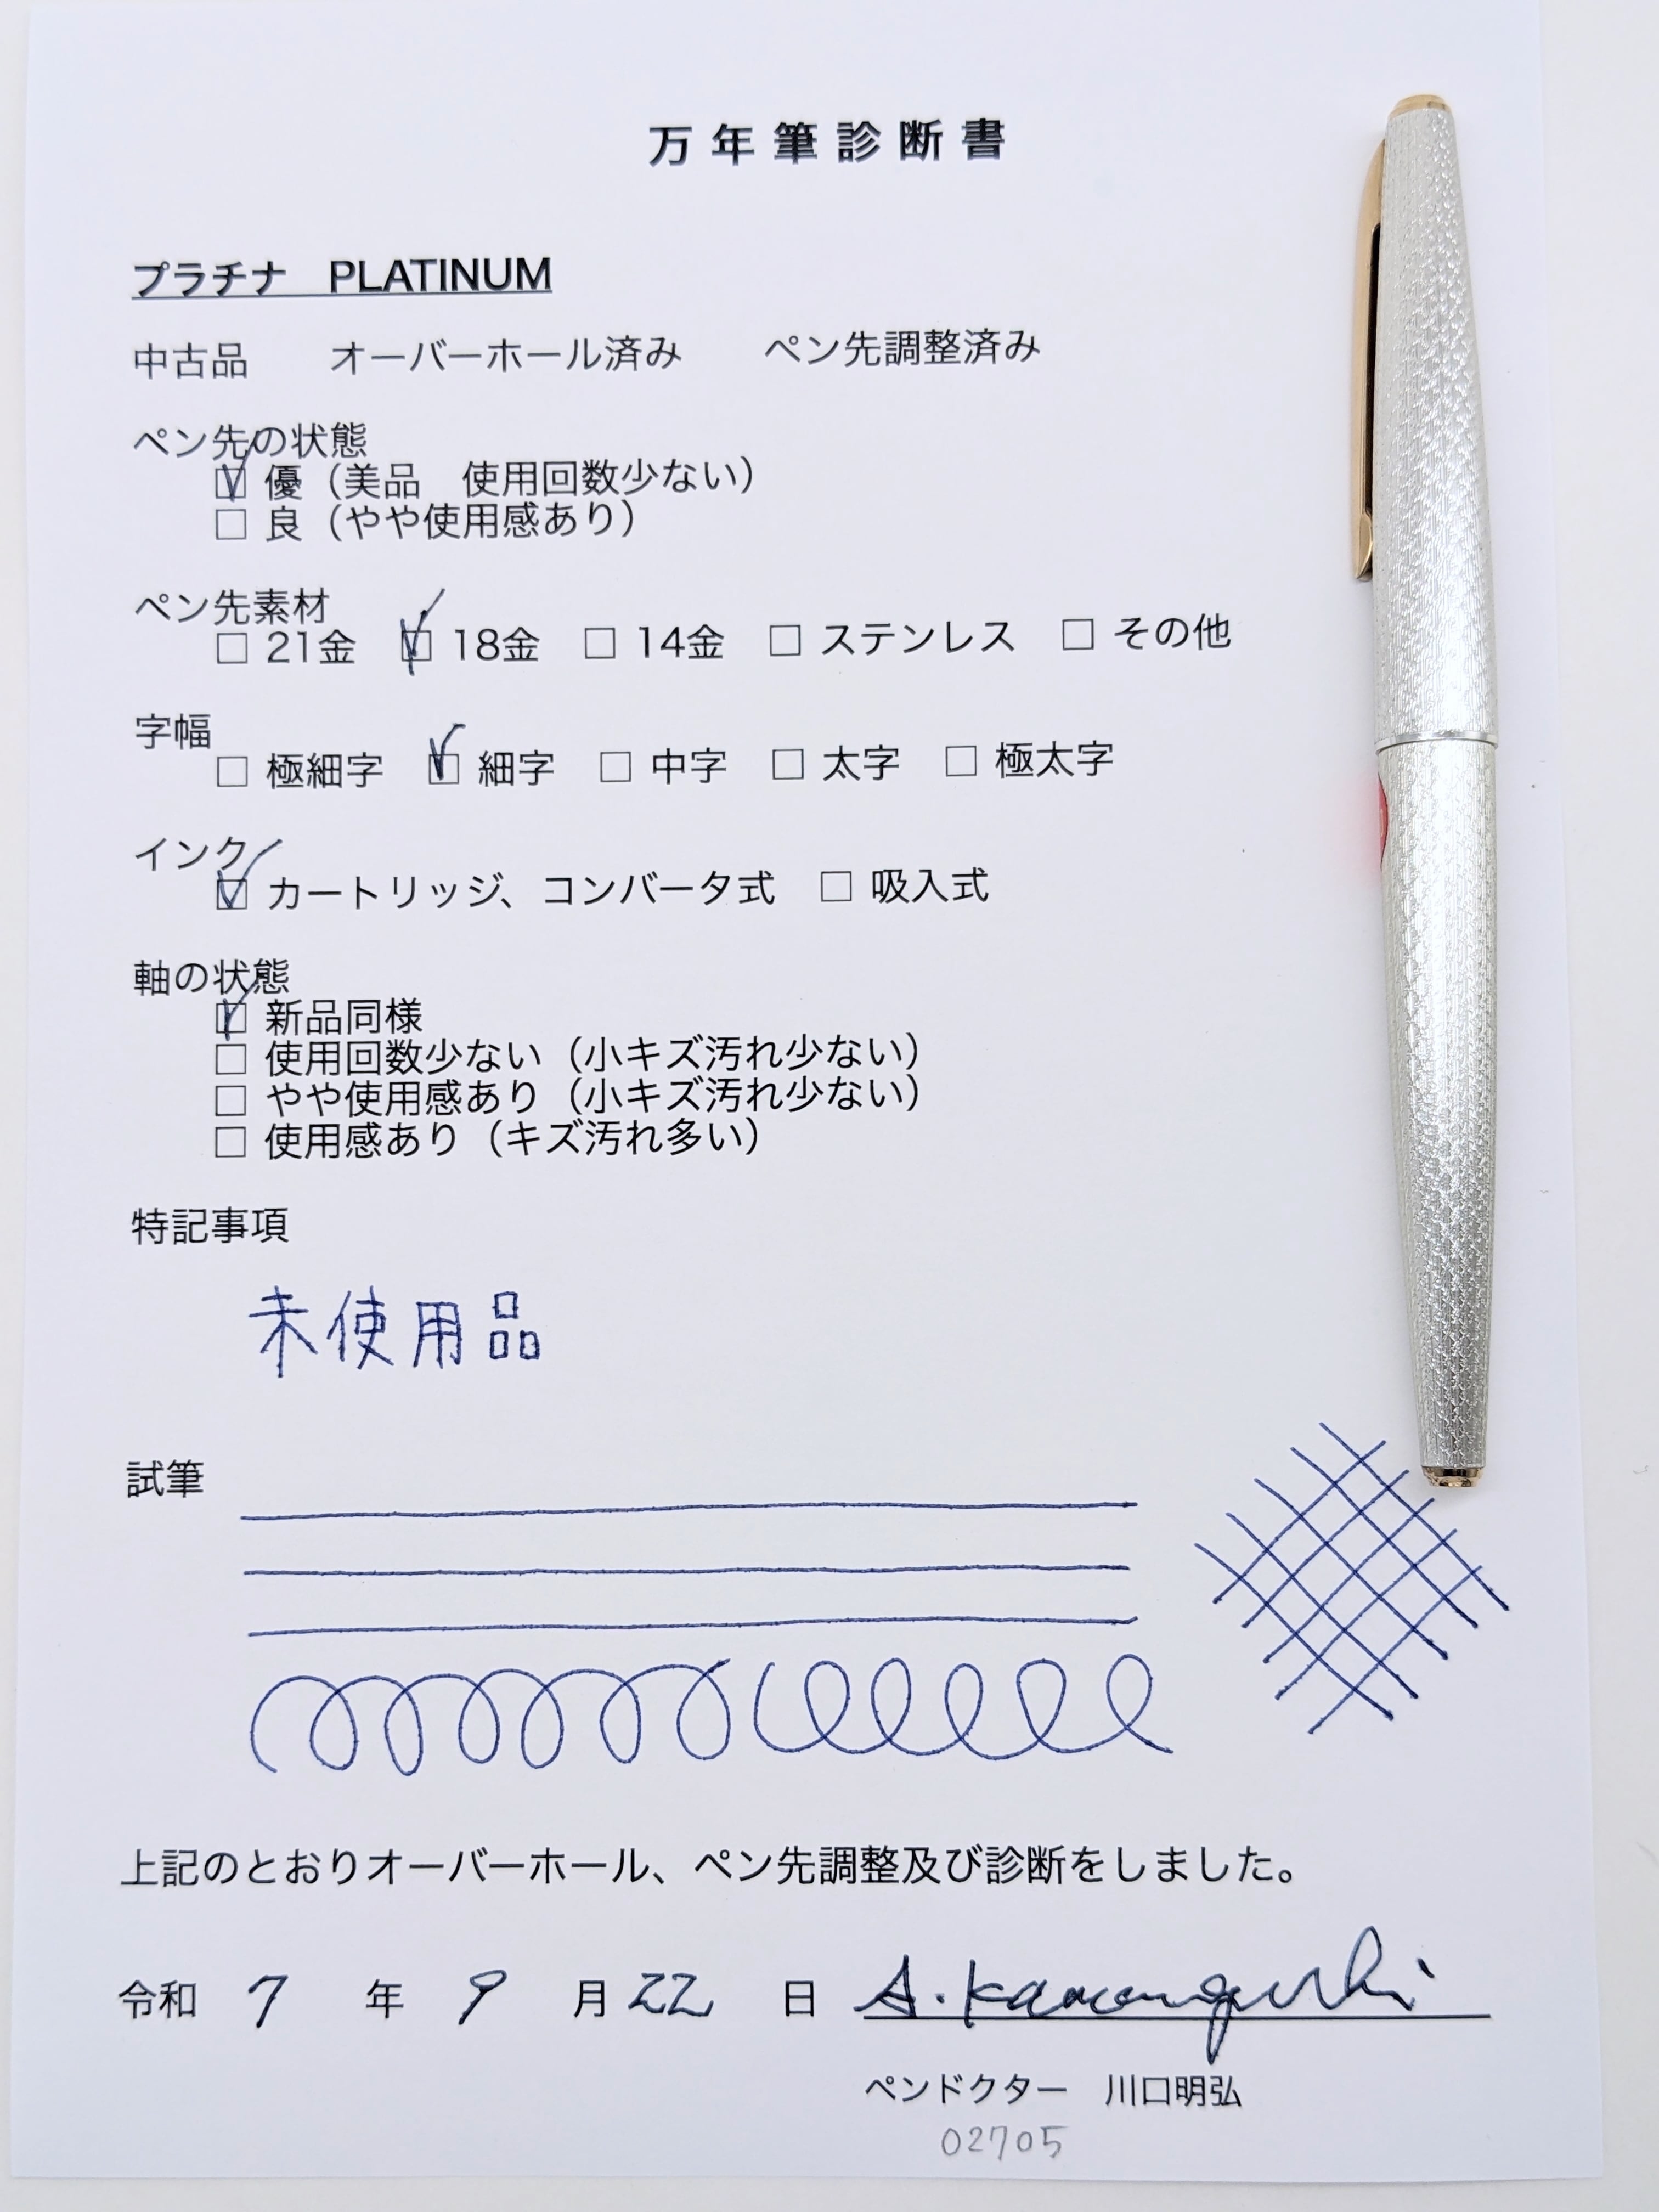 万年筆診断書
プラチナ　PLATINUM
中古品　オーバーホール済み　ペン先調整済み
ペン先の状態
☑ 優（美品　使用回数少ない）
□ 良（やや使用感あり）
ペン先素材
□ 21金 ☑ 18金 □ 14金 □ ステンレス □ その他
字幅
□ 極細字 ☑ 細字 □ 中字 □ 太字 □ 極太字
インク
☑ カートリッジ、コンバータ式 □ 吸入式
軸の状態
☑ 新品同様
□ 使用回数少ない（小キズ汚れ少ない）
□ やや使用感あり（小キズ汚れ少ない）
□ 使用感あり（キズ汚れ多い）
特記事項
未使用品
試筆
上記のとおりオーバーホール、ペン先調整及び診断をしました。
令和 7 年 9 月 22 日 A. Kawaguchi
ペンドクター　川口明弘
02705